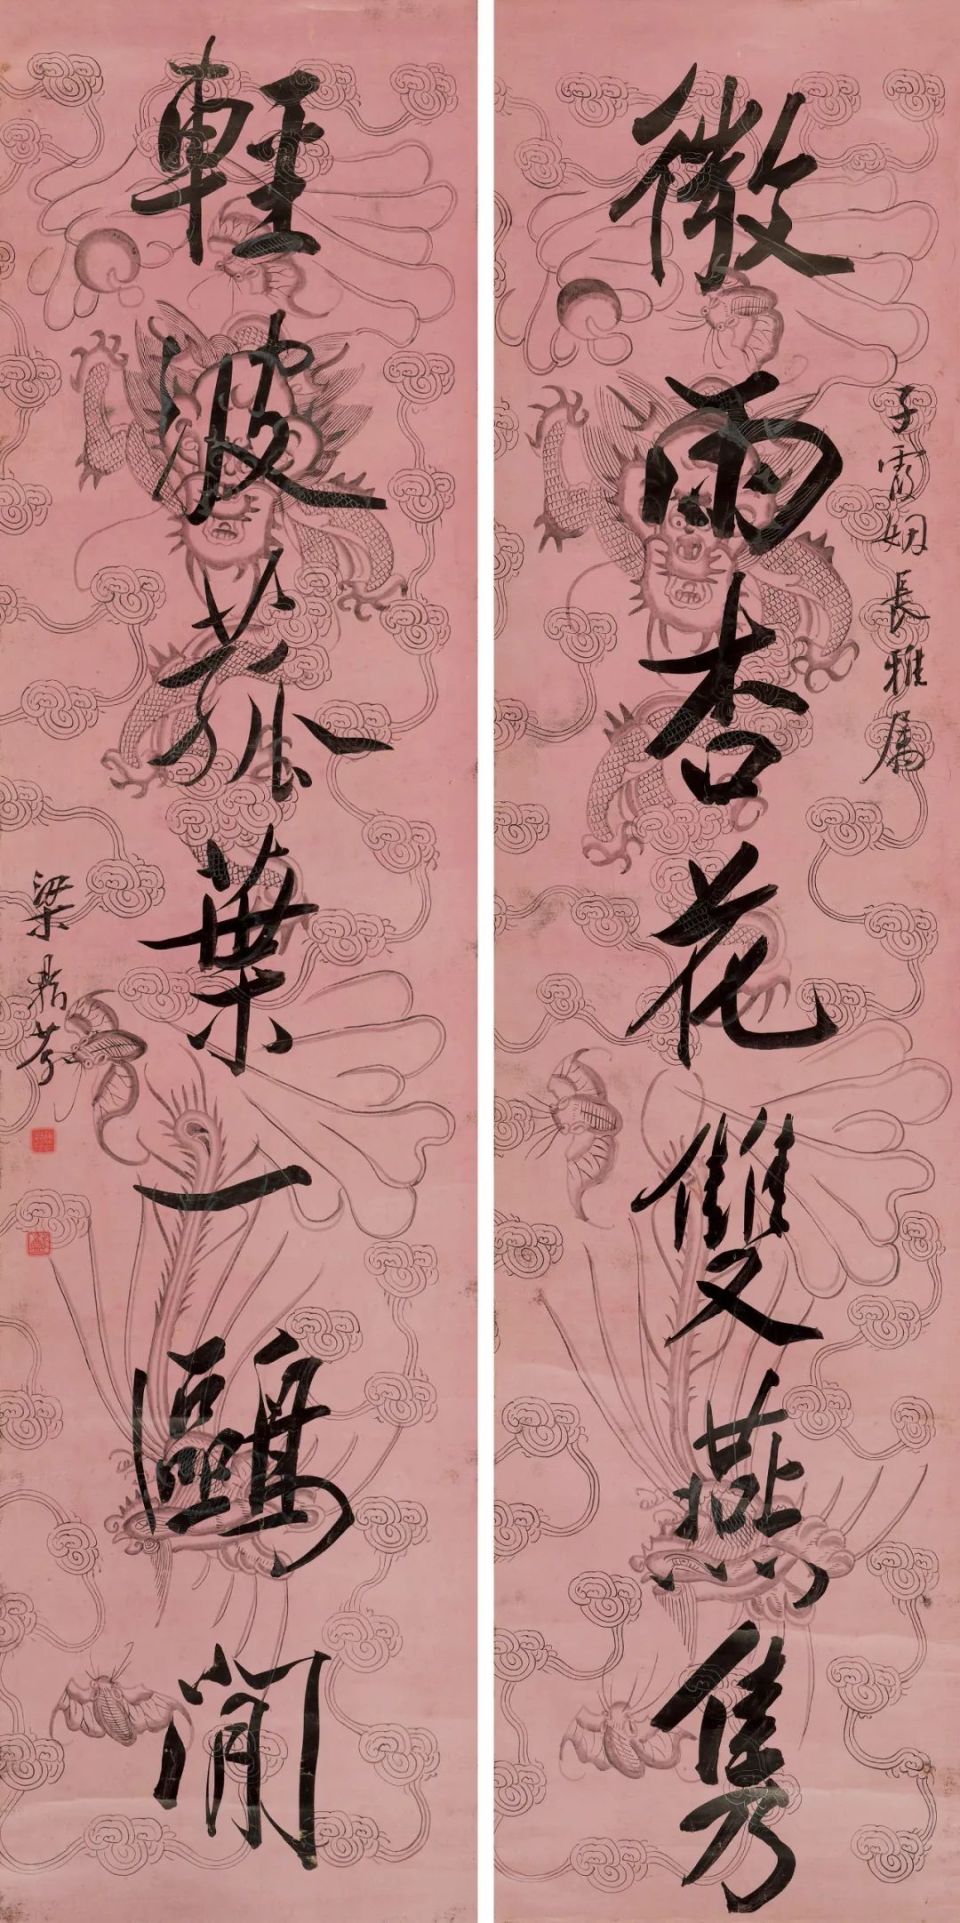 子霱姻長雅屬
微雨杏花雙燕雋
輕波菰葉一鷗閒
梁鼎芬